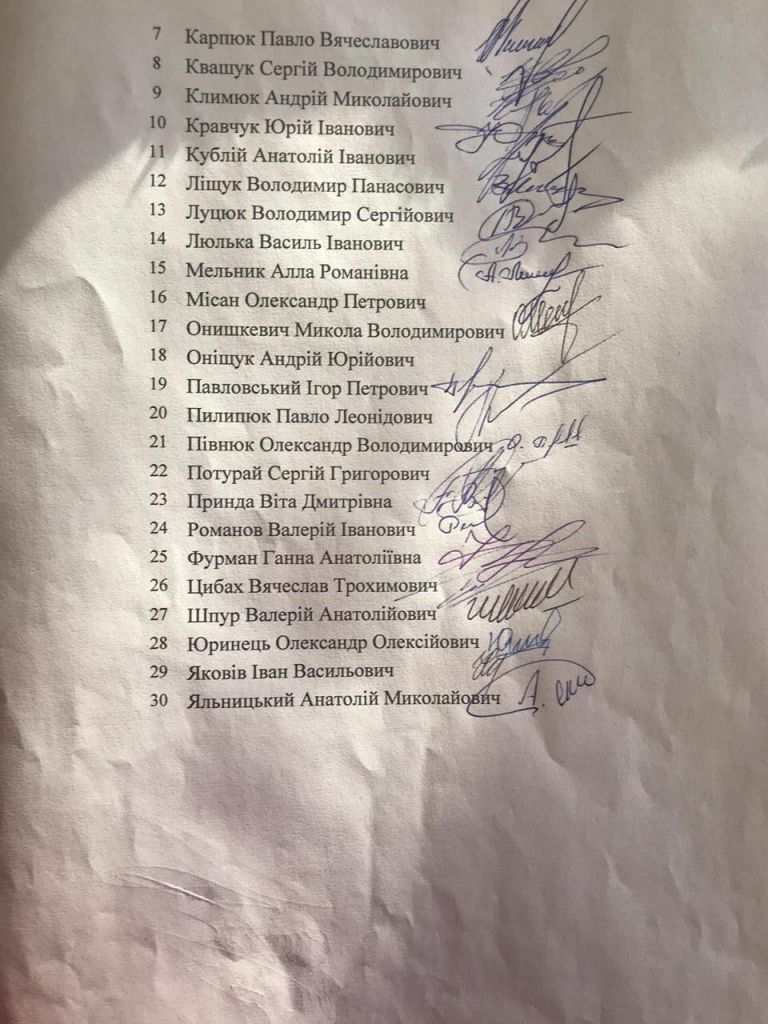 7 Карпюк Павло Вячеславович
8 Квашук Сергій Володимирович
9 Климюк Андрій Миколайович
10 Кравчук Юрій Іванович
11 Кублій Анатолій Іванович
12 Ліщук Володимир Панасович
13 Луцюк Володимир Сергійович
14 Люлька Василь Іванович
15 Мельник Алла Романівна
16 Місан Олександр Петрович
17 Онишкевич Микола Володимирович
18 Оніщук Андрій Юрійович
19 Павловський Ігор Петрович
20 Пилипюк Павло Леонідович
21 Півнюк Олександр Володимирович
22 Потурай Сергій Григорович
23 Принда Віта Дмитрівна
24 Романов Валерій Іванович
25 Фурман Ганна Анатоліївна
26 Цибах Вячеслав Трохимович
27 Шпур Валерій Анатолійович
28 Юринець Олександр Олексійович
29 Яковів Іван Васильович
30 Яльницький Анатолій Миколайович